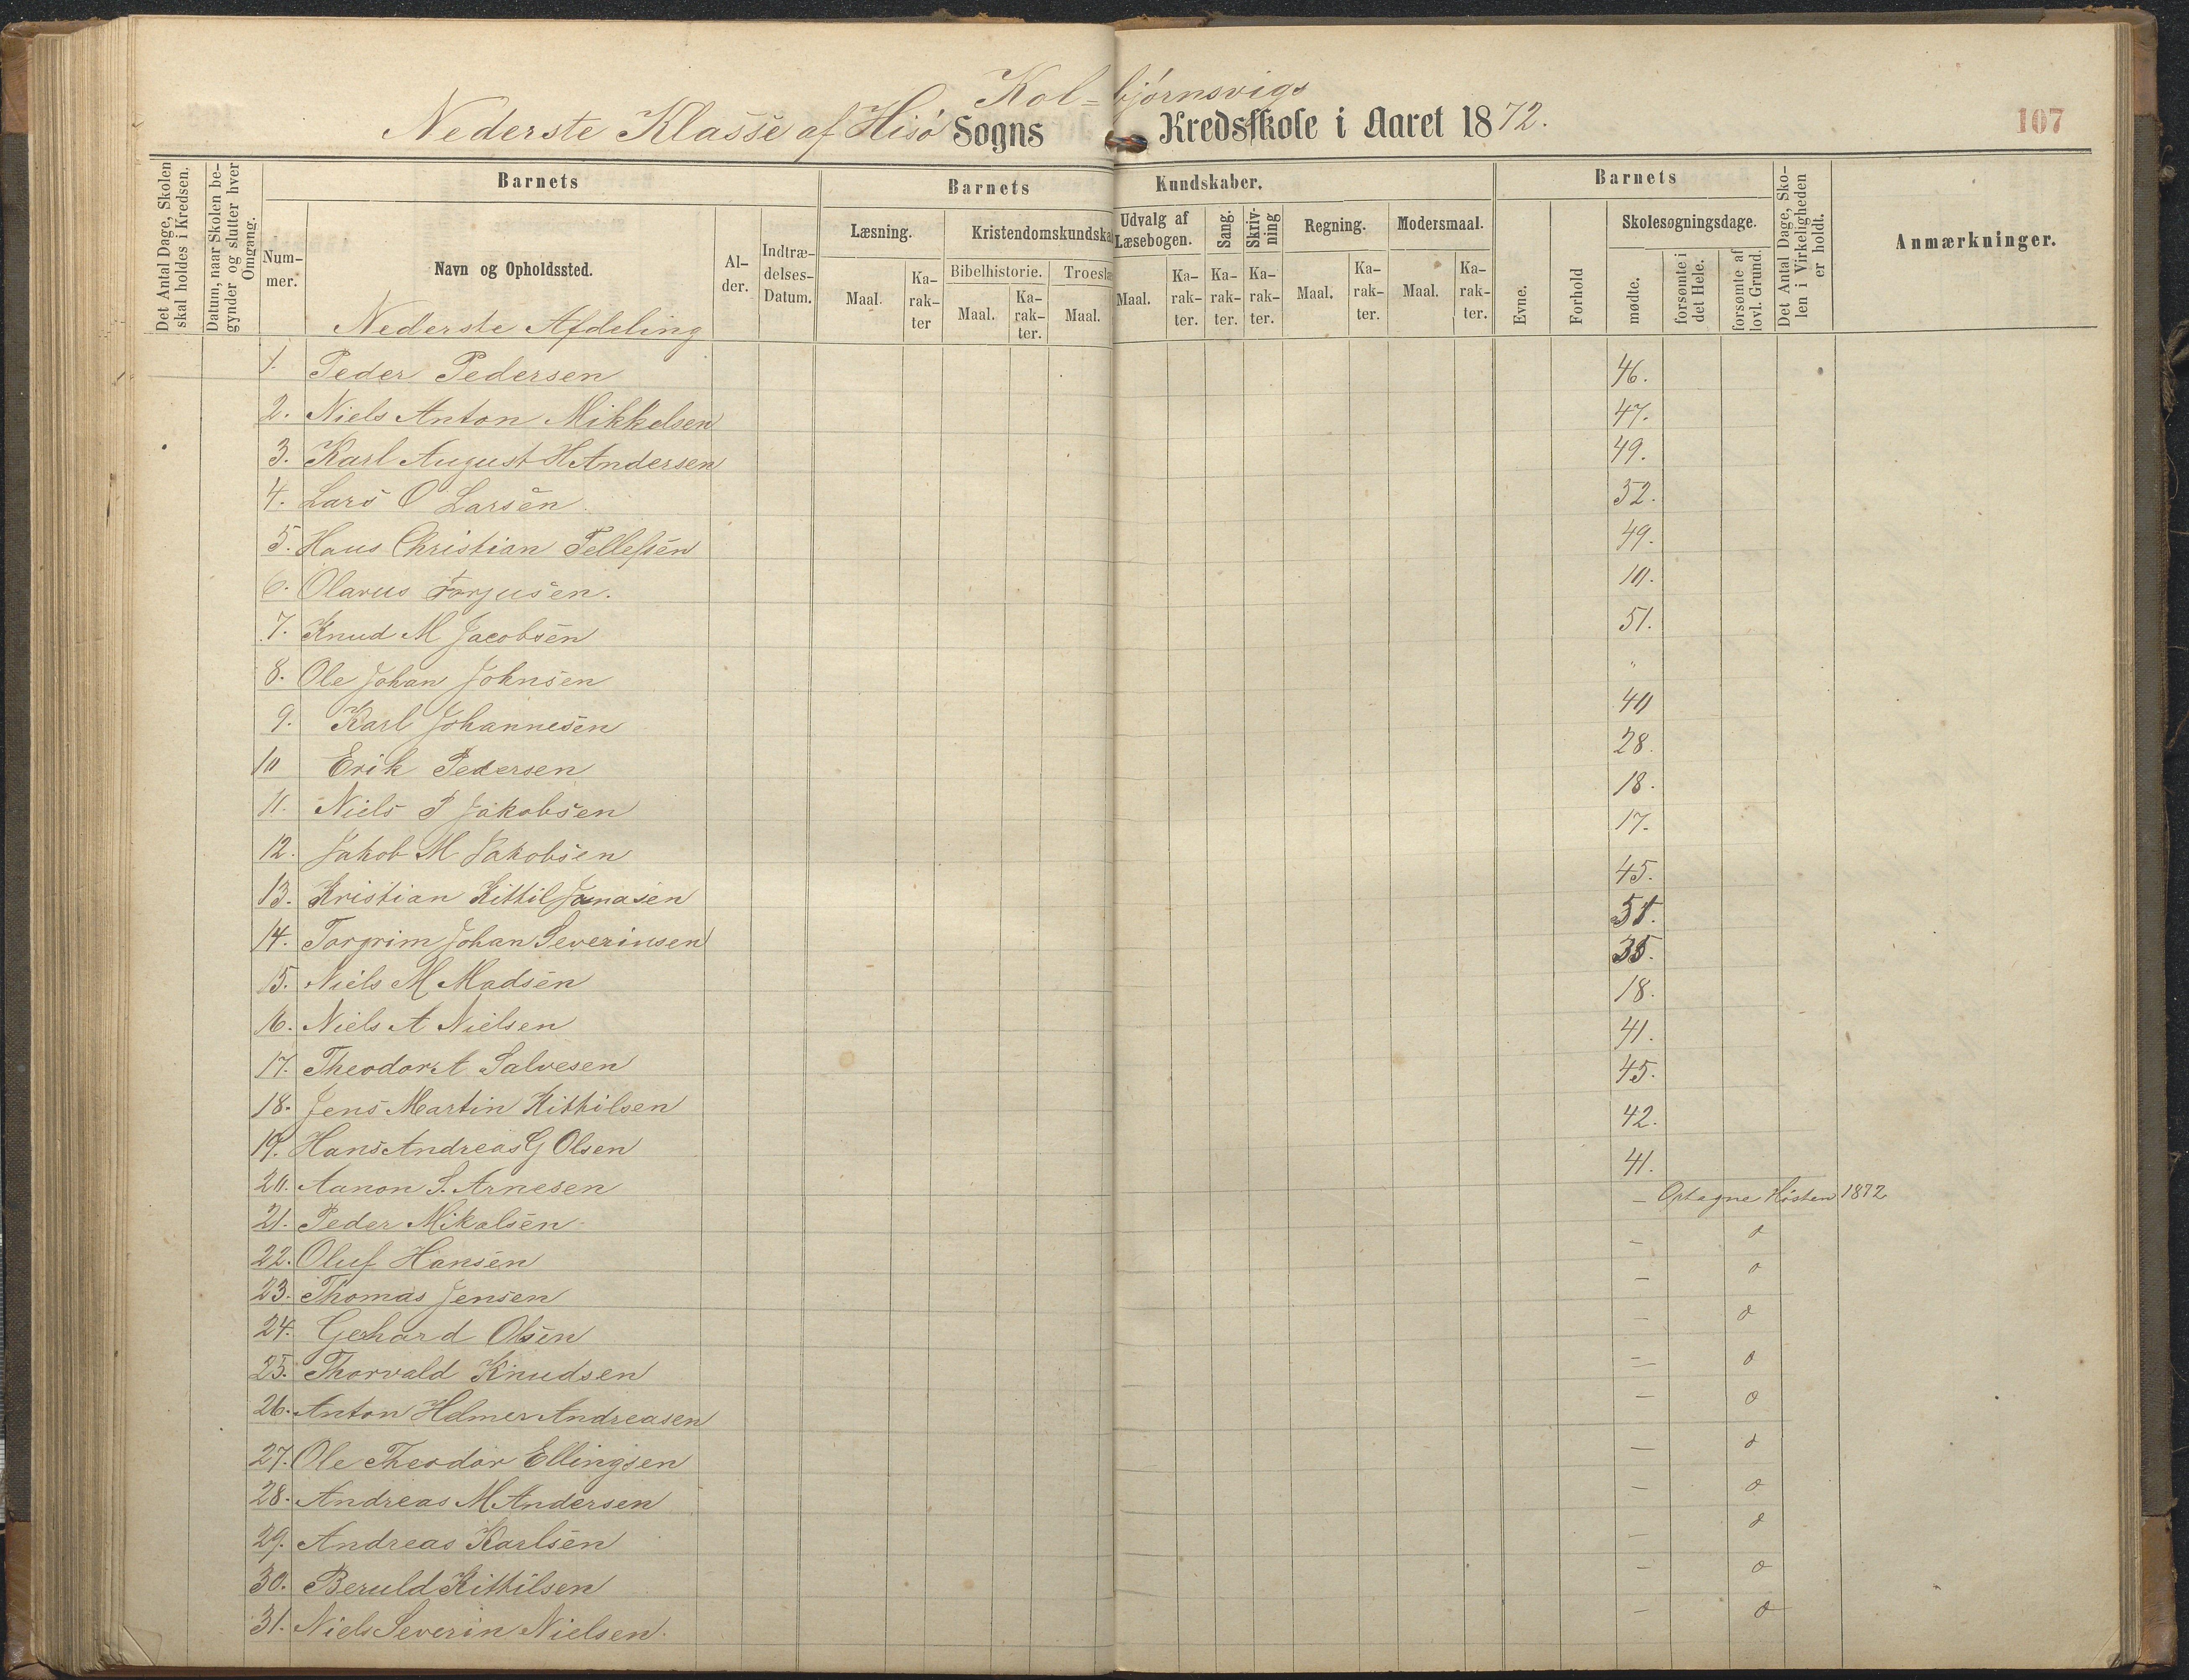 Kol=bjørnsvigs
Nederste Klasse af Hisø Sogns Kredsskole i Aaret 1872.
107
Det Antal Dage, Skolen skal holdes i Kredsen.
Datum, naar Skolen begynder og slutter hver Omgang.
Barnets
Nummer.
Navn og Opholdssted.
Alder.
Indtrædelses-Datum.
Barnets Kundskaber.
Læsning.
Maal.
Karakter
Kristendomskundska
Bibelhistorie.
Maal.
Karakter.
Troeslæ
Maal.
Udvalg af Læsebogen.
Maal.
Karakter.
Sang.
Karakter.
Skrivning
Karakter.
Regning.
Maal.
Karakter.
Modersmaal.
Maal.
Karakter.
Barnets
Evne.
Forhold
Skolesøgningsdage.
mødte.
forsømte i det Hele.
forsømte af lovl. Grund.
Det Antal Dage, Skolen i Virkeligheden er holdt.
Anmærkninger.
Nederste Afdeling
1. Peder Pedersen 46.
2. Niels Anton Mikkelsen 47.
3. Karl August H Andersen 49.
4. Lars O Larsen 52.
5. Hans Christian Tellefsen 49.
6. Olavus Torjusen. 10.
7. Knud M Jacobsen 51.
8. Ole Johan Johnsen "
9. Karl Johannesen 40
10 Erik Pedersen 28.
11. Niels P Jakobsen 18.
12. Jakob M Jakobsen 17.
13. Kristian Kittil Jonasen 45.
14. Torgrim Johan Severinsen 51.
15. Niels M Madsen 35.
16. Niels A Nielsen 18.
17. Theodor A Salvesen 41.
18. Jens Martin Kittilsen 45.
19. Hans Andreas G Olsen 42.
20. Aanon S. Arnesen 41.
21. Peder Mikalsen – Optagne Høsten 1872
22. Oluf Hansen – d
23. Thomas Jensen – d
24. Gerhard Olsen – d
25. Thorvald Knudsen – d
26. Anton Helmer Andreasen – d
27. Ole Theodor Ellingsen – d
28. Andreas M Andersen – d
29. Andreas Karlsen – d
30. Beruld Kittilsen – d
31. Niels Severin Nielsen. – d